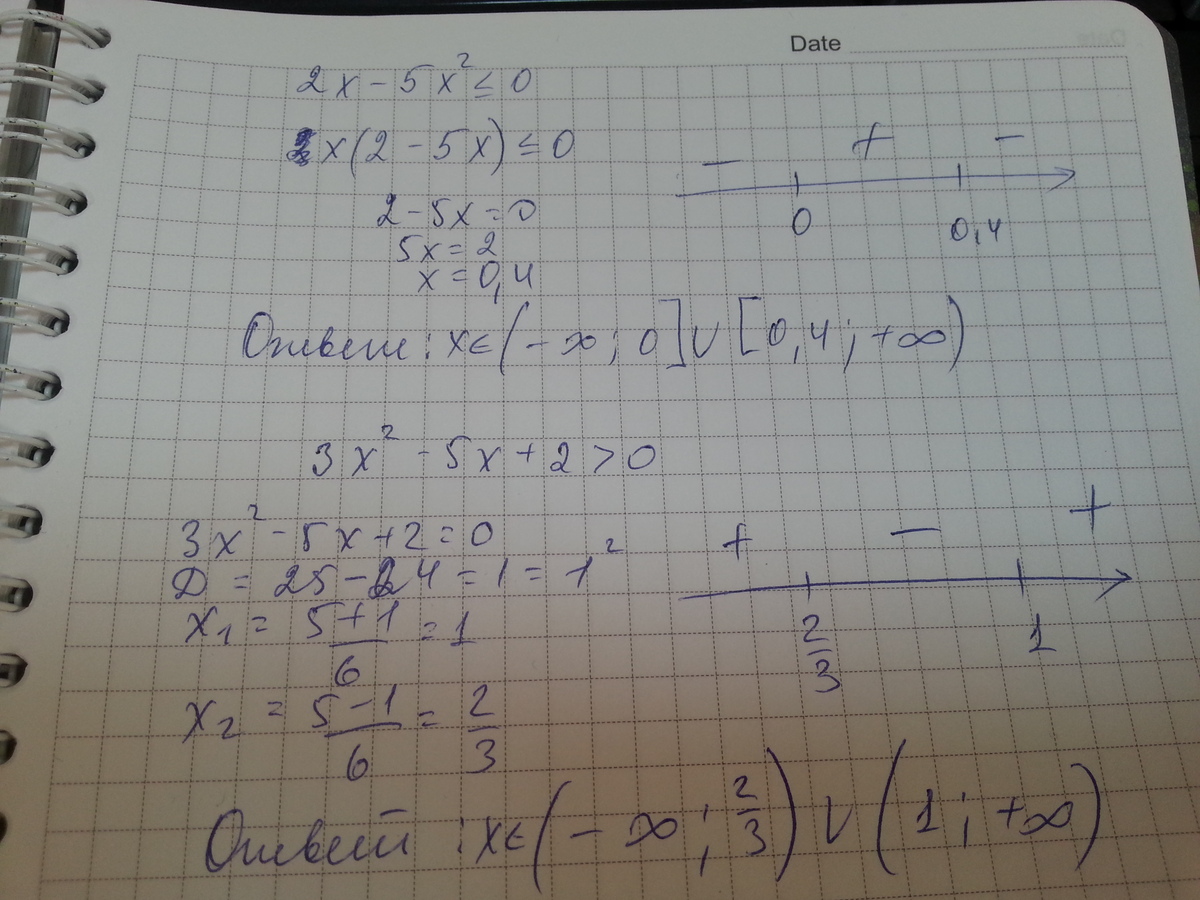 Date
2x - 5x² ≤ 0
x(2 - 5x) ≤ 0
2 - 5x = 0
5x = 2
x = 0,4
- + -
0 0,4
Ответ: x ∈ (-∞; 0] ∪ [0,4; +∞)
3x² - 5x + 2 > 0
3x² - 5x + 2 = 0
D = 25 - 24 = 1 = 1²
x₁ = (5+1)/6 = 1
x₂ = (5-1)/6 = 2/3
+ - +
2/3 1
Ответ: x ∈ (-∞; 2/3) ∪ (1; +∞)